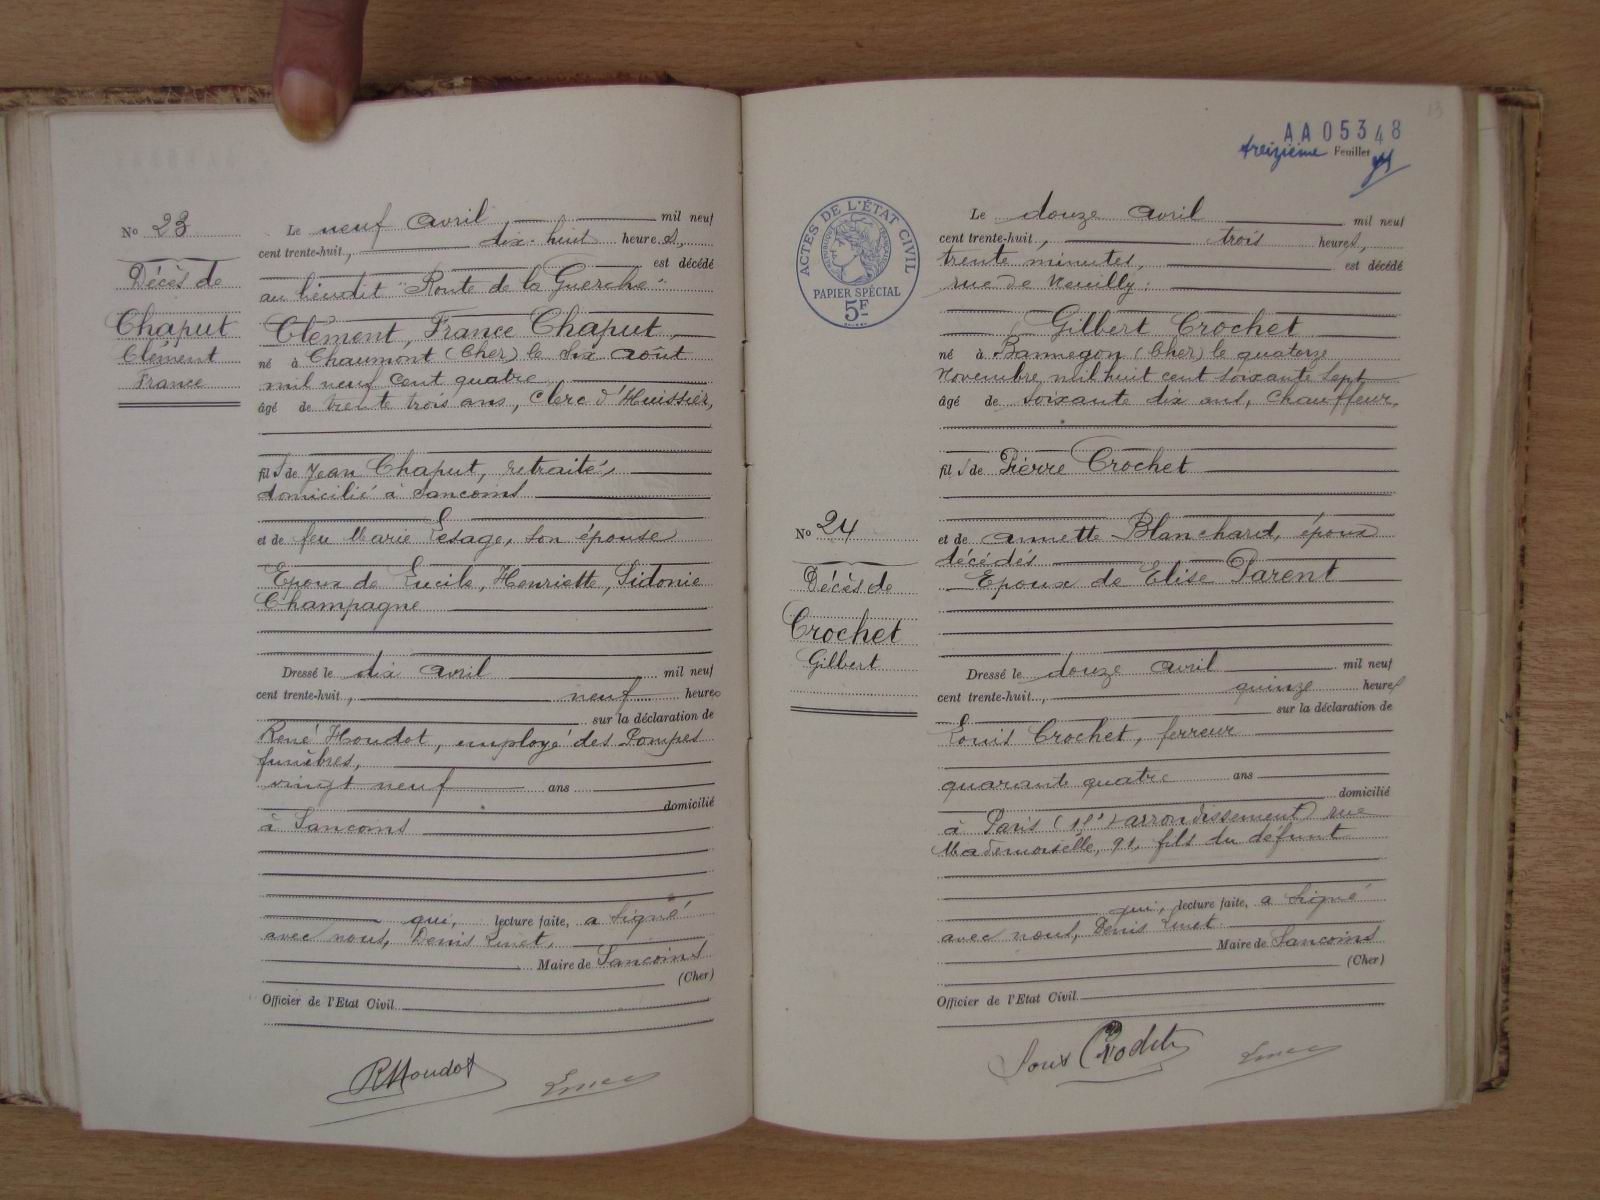 No 23
Décès de
Chaput
Clément
France
Le neuf avril, mil neuf
cent trente-huit, dix-huit heures,
est décédé
au lieudit "Route de la Guerche"
Clément, France Chaput,
né à Chaumont (Cher) le dix août
mil neuf cent quatre
âgé de trente trois ans, Clerc d'Huissier,
fils de Jean Chaput, retraité,
domicilié à Sancoins
et de feu Marie Lesage, son épouse
Epoux de Lucile, Henriette, Sidonie
Champagne
Dressé le dix avril mil neuf
cent trente-huit, neuf heures
sur la déclaration de
René Houdot, employé des Pompes
funèbres,
vingt neuf ans
domicilié
à Sancoins
qui, lecture faite, a signé
avec nous, Denis
Maire de Sancoins
(Cher)
Officier de l'Etat Civil
RHoudot
AA05348
treizième Feuillet
13
ACTES DE L'ÉTAT CIVIL
RÉPUBLIQUE FRANÇAISE
PAPIER SPÉCIAL
5F
No 24
Décès de
Crochet
Gilbert
Le douze avril mil neuf
cent trente-huit, trois heures,
trente minutes, est décédé
rue de Neuilly,
Gilbert Crochet
né à Bannegon (Cher) le quatorze
Novembre mil huit cent soixante sept
âgé de soixante dix ans, chauffeur,
fils de Pierre Crochet
et de Annette Blanchard, époux
décédés
Epoux de Elise Parent
Dressé le douze avril mil neuf
cent trente-huit, quinze heures
sur la déclaration de
Louis Crochet, ferreur
quarante quatre ans
domicilié
à Paris (arrondissement) rue
Mademoiselle, 91, fils du défunt
qui, lecture faite, a signé
avec nous, Denis
Maire de Sancoins
(Cher)
Officier de l'Etat Civil